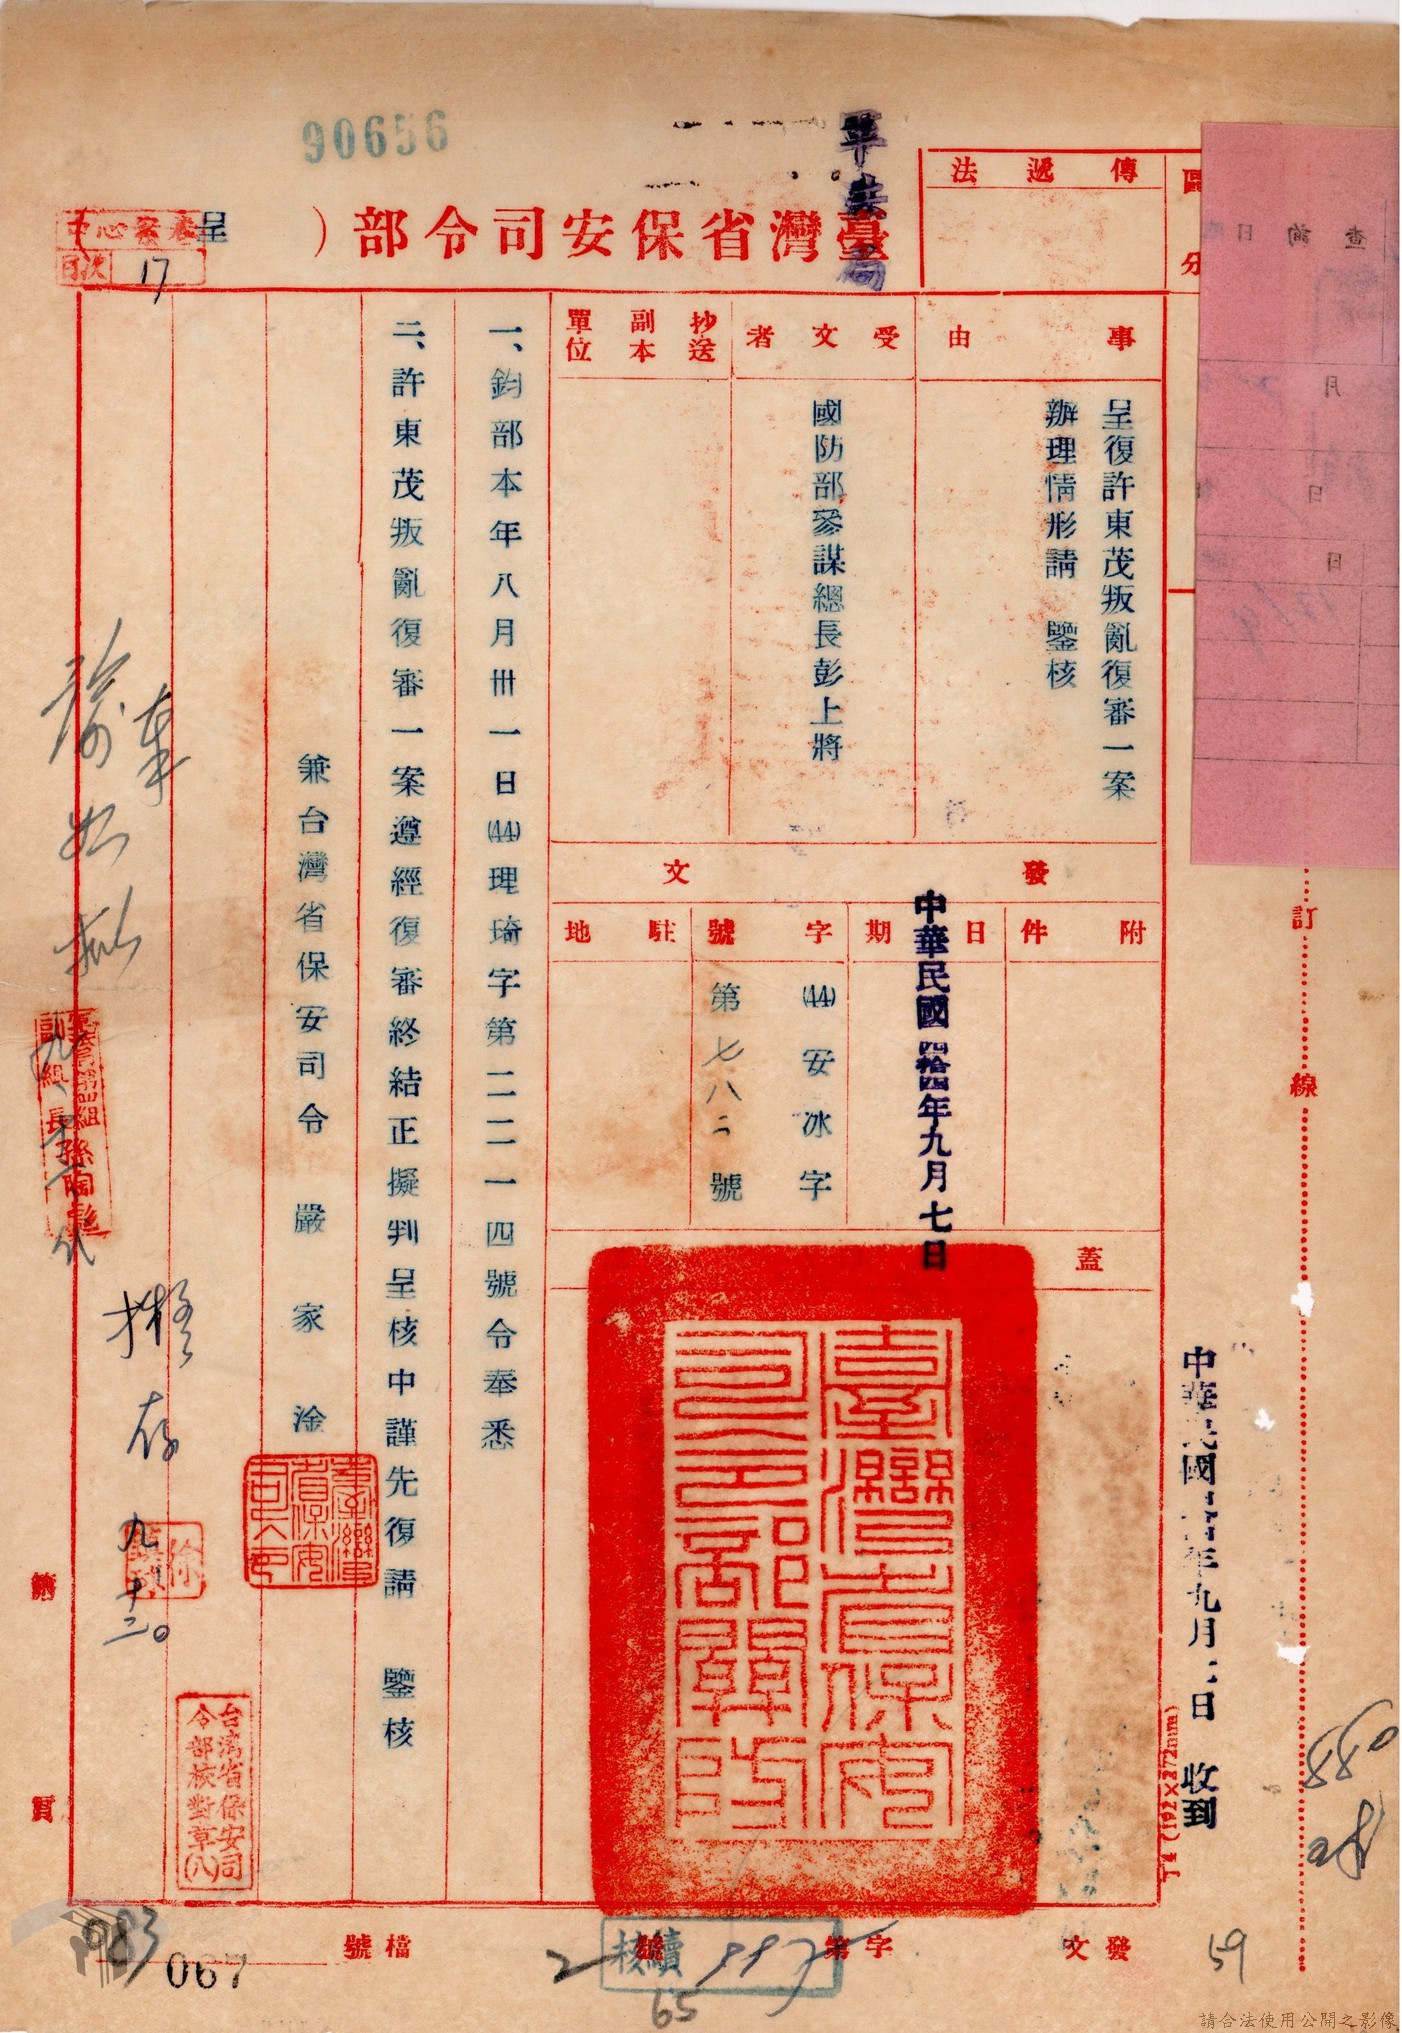 90656
軍法局
臺灣省保安司令部（呈）
卷案心中
目次 17
傳遞法
區分
事由
呈復許東茂叛亂復審一案
辦理情形請　鑒核
受文者
國防部參謀總長彭上將
抄送副本單位
發文
附件
日期
中華民國肆拾四年九月七日
字號
(44)安冰字
第七八二號
駐地
蓋
臺灣省保安司令部關防
一、鈞部本年八月卅一日(44)理琦字第二二二一四號令奉悉
二、許東茂叛亂復審一案遵經復審終結正擬判呈核中謹先復請　鑒核
兼台灣省保安司令　嚴家淦
台灣省保安司令部校對章(八)
如擬
擬存
九、十三。
第　頁
訂線
查詢日
月
日
日
中華民國　年九月　日　收到
丁4（192×272mm）
59
發文　字第　號
檔號
067
65
請合法使用公開之影像